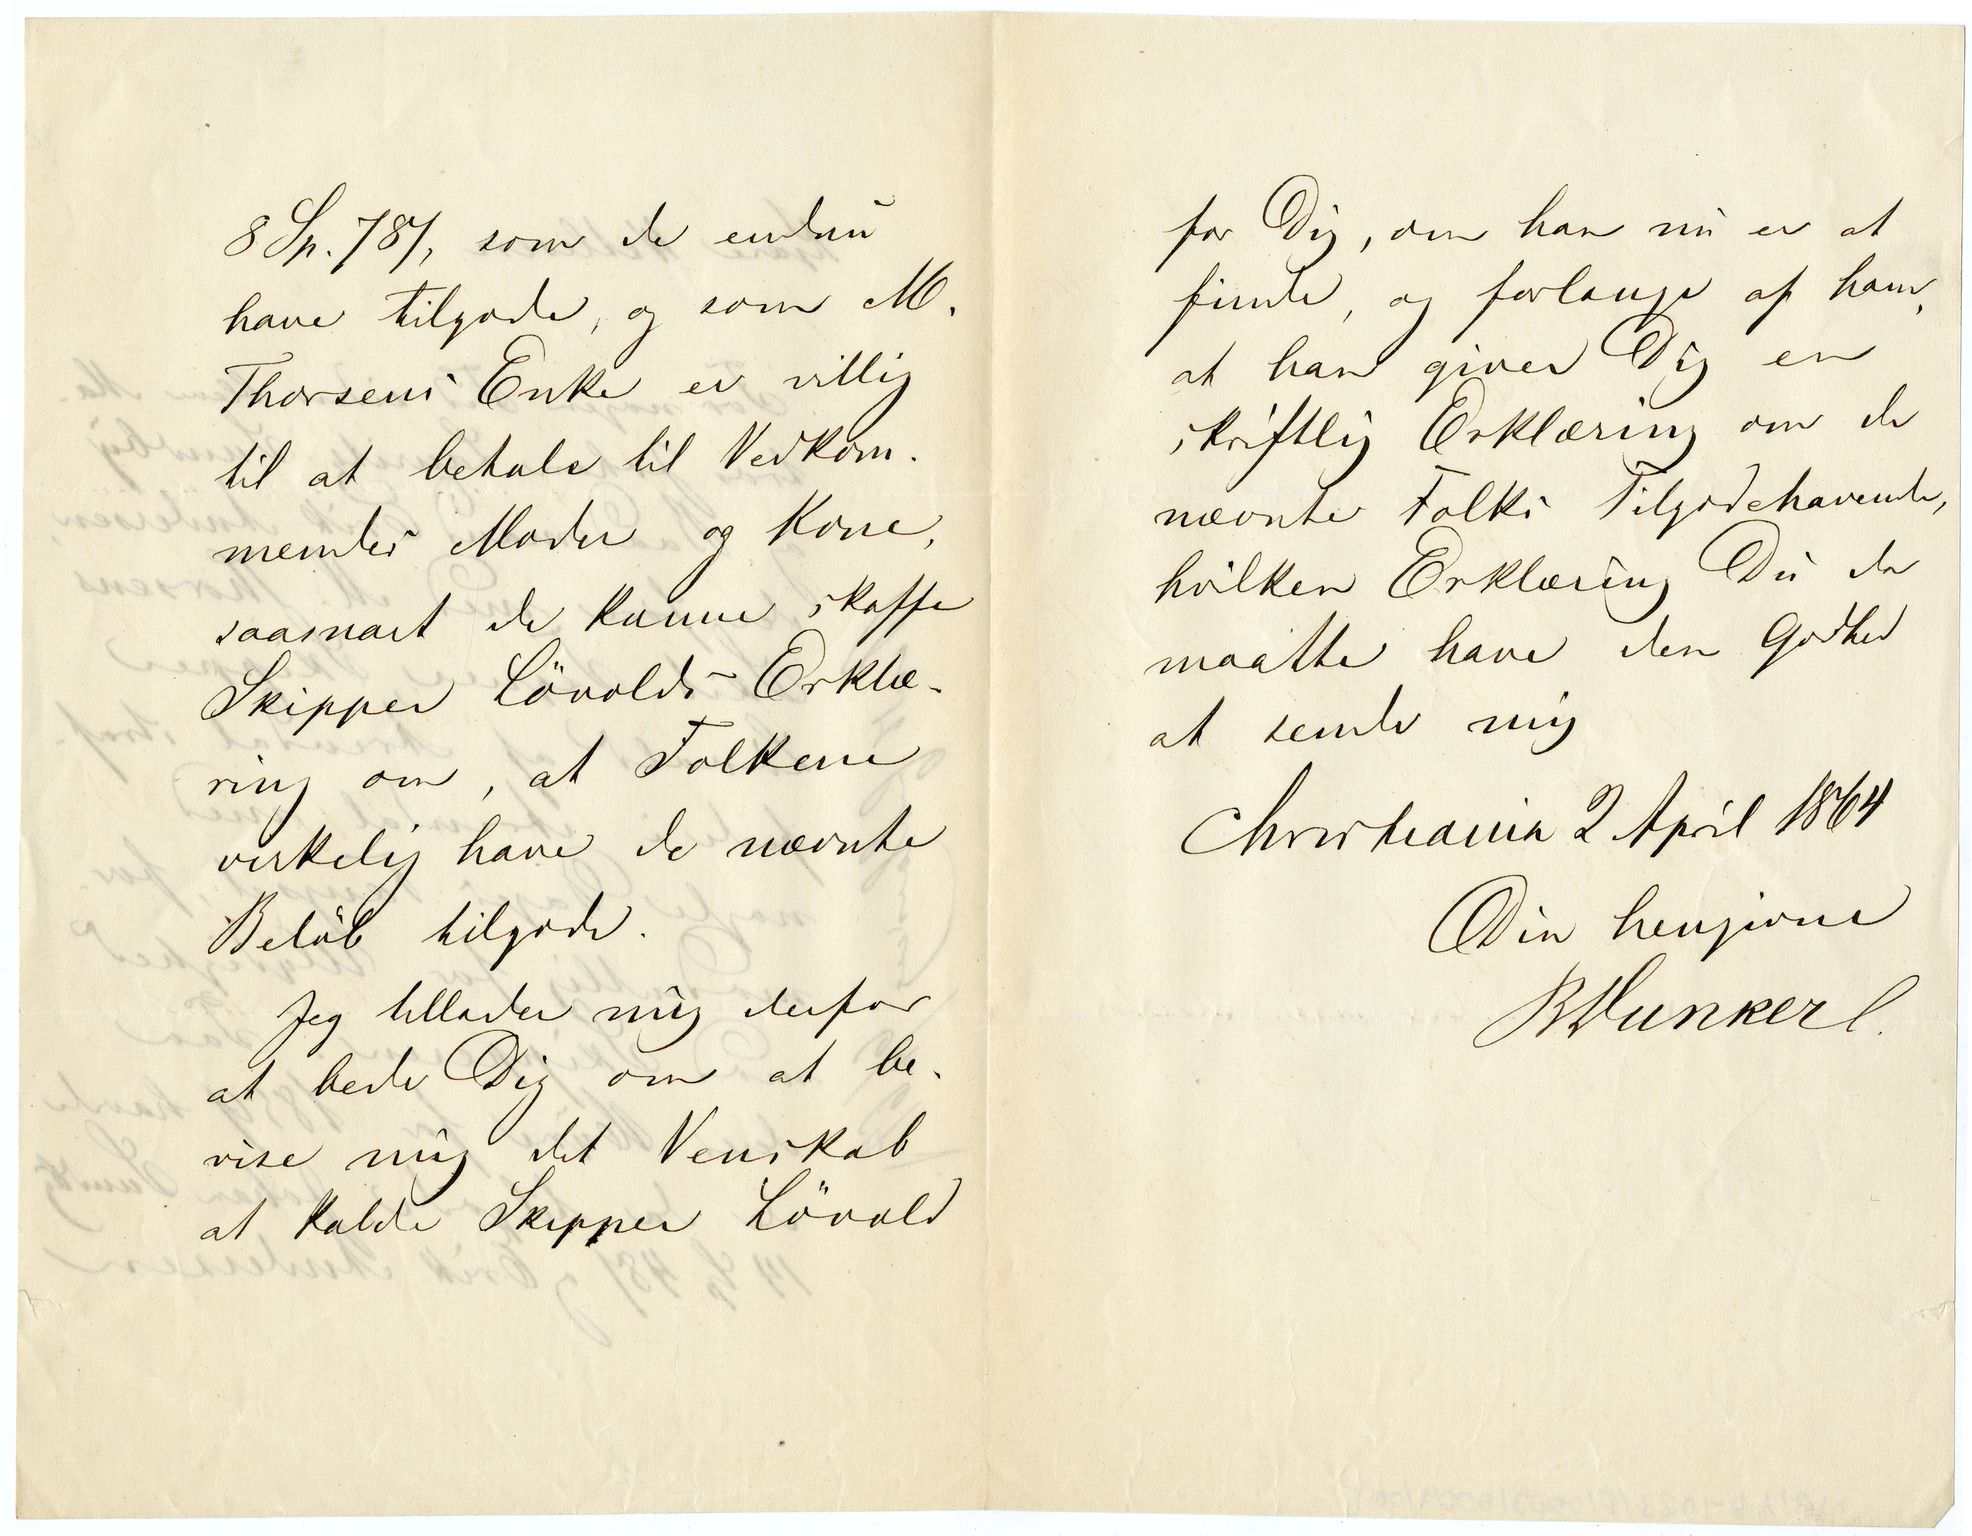 8 Sp. 78/, som de endnu
have tilgode, og som M.
Thorsens Enke er villig
til at betale til Vedkom-
mendes Moder og Kone,
saasnart de kunne skaffe
Skipper Lövolds Erklæ-
ring om, at Folkene
virkelig have de nævnte
Belöb tilgode.
Jeg tillader mig derfor
at bede Dig om at be-
vise mig det Venskab
at kalde Skipper Lövold
for Dig, om han nu er at
finde, og forlange af ham,
at han giver Dig en
skriftlig Erklæring om de
nævnte Folks Tilgodehavende,
hvilken Erklæring Du da
maatte have den Godhed
at sende mig
Christiania 2 April 1864
Din hengivne
B Dunker